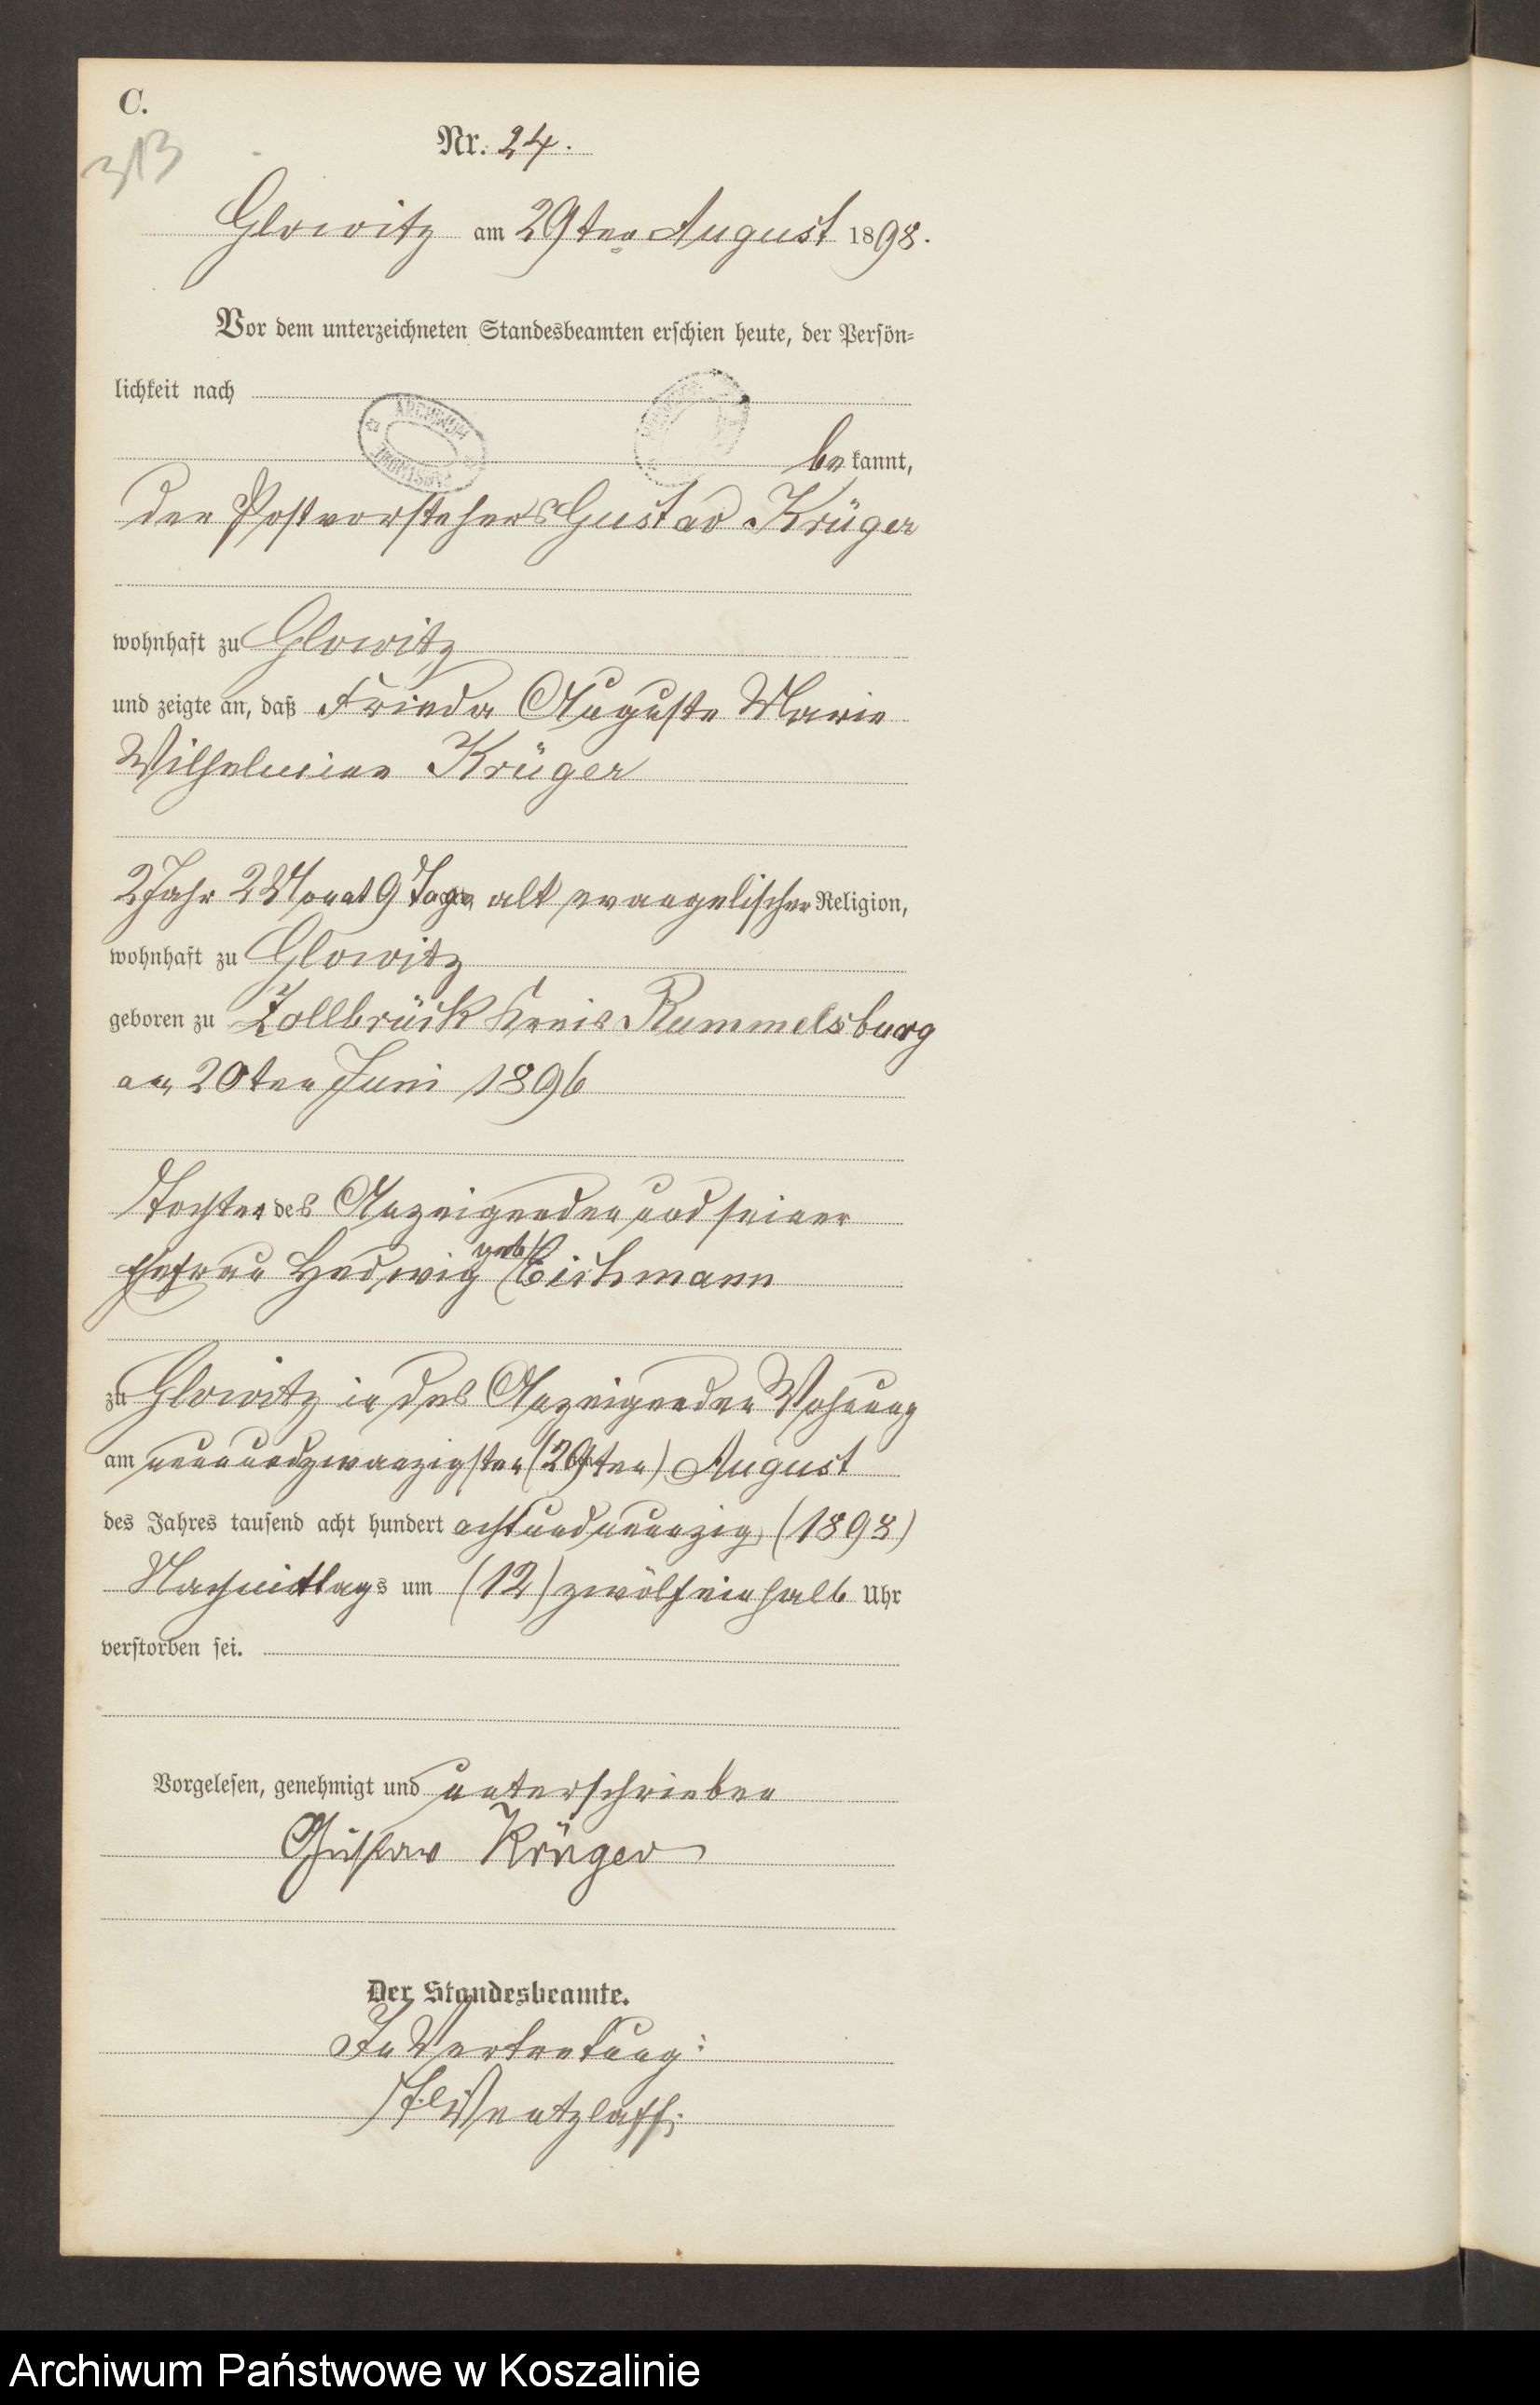 C.
313
Nr. 24.
Glowitz am 29ten August 1898.
Vor dem unterzeichneten Standesbeamten erschien heute, der Persön-
lichkeit nach
bekannt,
der Postvorstehers Gustav Krüger
wohnhaft zu Glowitz
und zeigte an, daß Frieda Auguste Marie
Wilhelmine Krüger
2 Jahr 2 Monat 9 Tage alt evangelischer Religion,
wohnhaft zu Glowitz
geboren zu Zollbrück Kreis Rummelsburg
am 20ten Juni 1896
Tochter des Anzeigenden und seiner
Ehefrau Hedwig geb. Eichmann
zu Glowitz in des Anzeigenden Wohnung
am neunundzwanzigsten (29ten) August
des Jahres tausend acht hundert achtundneunzig (1898)
Nachmittags um (12) zwölfeinhalb Uhr
verstorben sei.
Vorgelesen, genehmigt und unterschrieben
Gustav Krüger
Der Standesbeamte.
In Vertretung:
Wentzlaff.
Archiwum Państwowe w Koszalinie